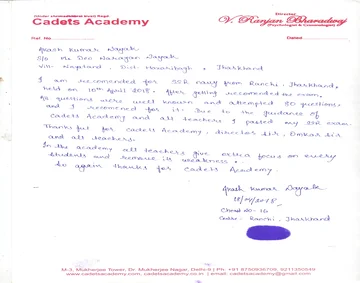 Cadets Academy
Director
V. Ranjan Bharadwaj
(Psychologist & Cosmologist)
Ref. No.
Dated
Akash Kumar Nayak
S/o Mr. Deo Narayan Nayak
Vill- Naptand, Dist- Hazaribagh, Jharkhand
I am recommended for SSR navy from Ranchi, Jharkhand,
held on 10th April 2018. After getting recommended the exam,
questions were well known and attempted 80 questions
and I recommend for it. Due to the guidance of
Cadets Academy and all teachers I passed my SSR exam.
Thankful for cadets Academy, director sir, Omkar sir
and all teachers.
In the academy all teachers give extra focus on every
students and remove its weakness.
So again thanks for Cadets Academy.
Akash Kumar Nayak
2018
Chest No- 16
Centre- Ranchi, Jharkhand
M-3, Mukherjee Tower, Dr. Mukherjee Nagar, Delhi-9 | Ph. +91 8750936709, 9211350949
www.cadetsacademy.com, cadetsacademy.co.in | email : cadetsacademy@gmail.com